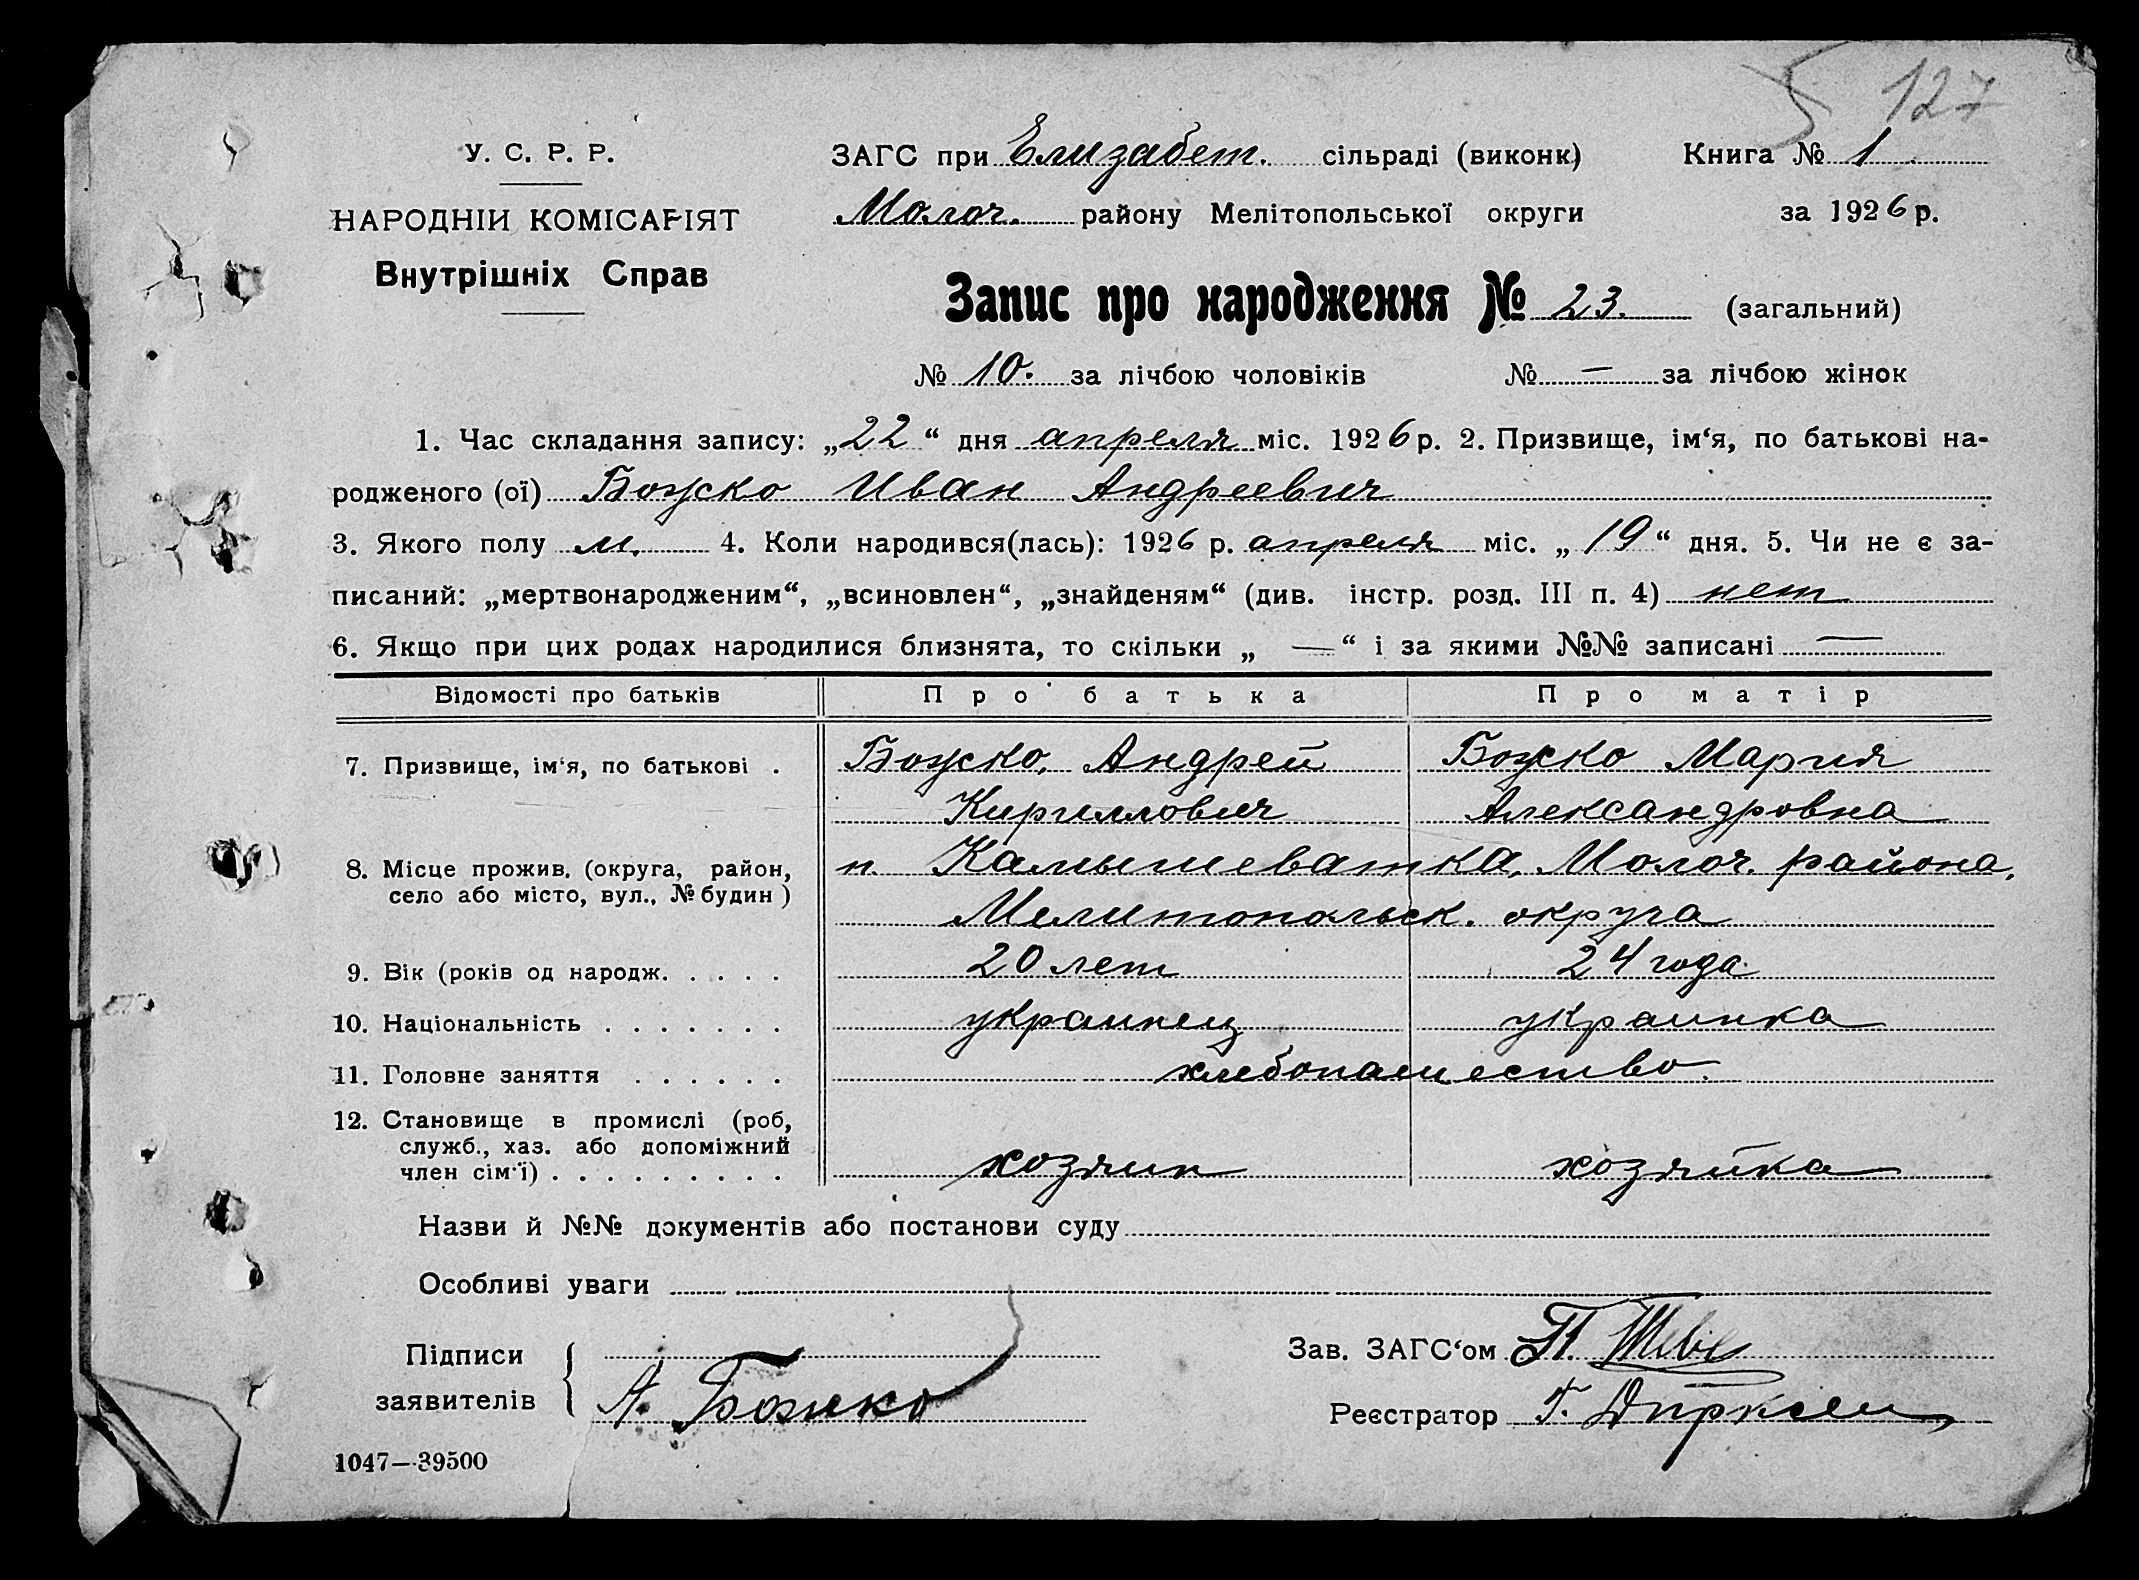 127
У. С. Р. Р.
НАРОДНІЙ КОМІСАРІЯТ
Внутрішніх Справ
ЗАГС при Елизабет. сільраді (виконк)
Книга № 1
Молоч. району Мелітопольської округи
за 1926 р.
Запис про народження № 23. (загальний)
№ 10. за лічбою чоловіків № — за лічбою жінок
1. Час складання запису: „22“ дня апреля міс. 1926 р. 2. Призвище, ім‘я, по батькові на-
родженого (ої) Божко Иван Андреевич
3. Якого полу м. 4. Коли народився(лась): 1926 р. апреля міс. „19“ дня. 5. Чи не є за-
писаний: „мертвонародженим“, „всиновлен“, „знайденям“ (див. інстр. розд. III п. 4) нет
6. Якщо при цих родах народилися близнята, то скільки „ — “ і за якими №№ записані —
Відомості про батьків Про батька Про матір
7. Призвище, ім‘я, по батькові . Божко, Андрей Божко Мария
Кириллович Александровна
8. Місце прожив. (округа, район, п. Камышеватка, Молоч. района,
село або місто, вул., № будин ) Мелитопольск. округа
9. Вік (років од народж. . . . . 20 лет 24 года
10. Національність . . . . . . . украинец украинка
11. Головне заняття . . . . . . хлебопашество.
12. Становище в промислі (роб,
служб., хаз. або допоміжний
член сім‘ї) . . . . . . . . . хозяин хозяйка
Назви й №№ документів або постанови суду
Особливі уваги
Підписи
заявителів
А. Божко
Зав. ЗАГС‘ом П.
Реєстратор Г. Дирксен
1047—39500